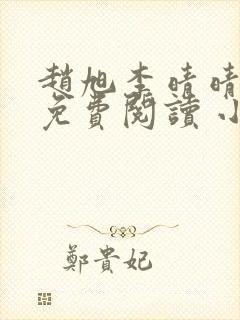 趙旭李晴晴
免費閱讀小
鄭貴妃